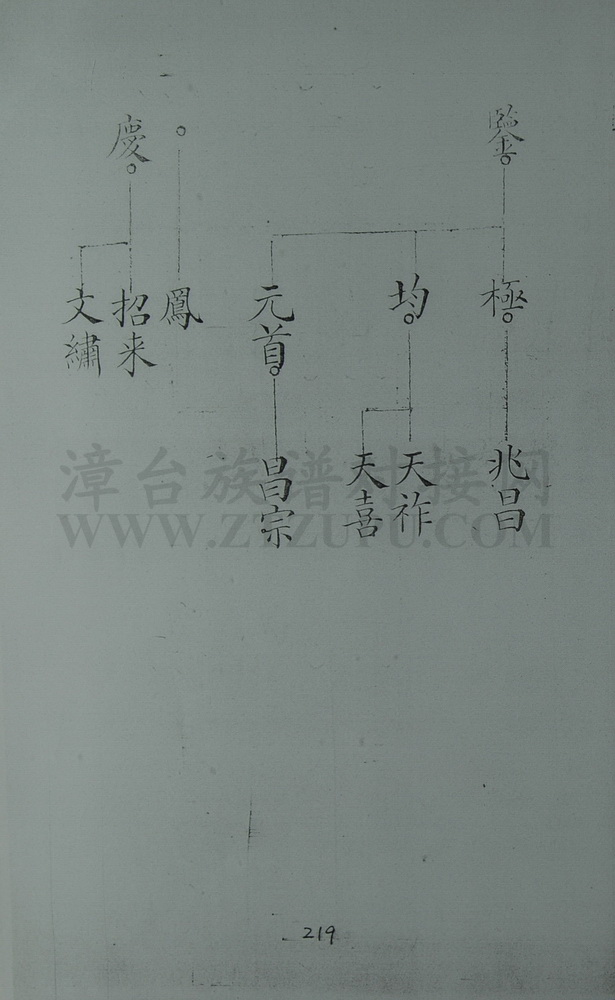 鑒
極
兆昌
均
天祚
天喜
元首
昌宗
鳳
慶
招来
文繡
漳台族谱对接网
WWW.ZTZUPU.COM
219